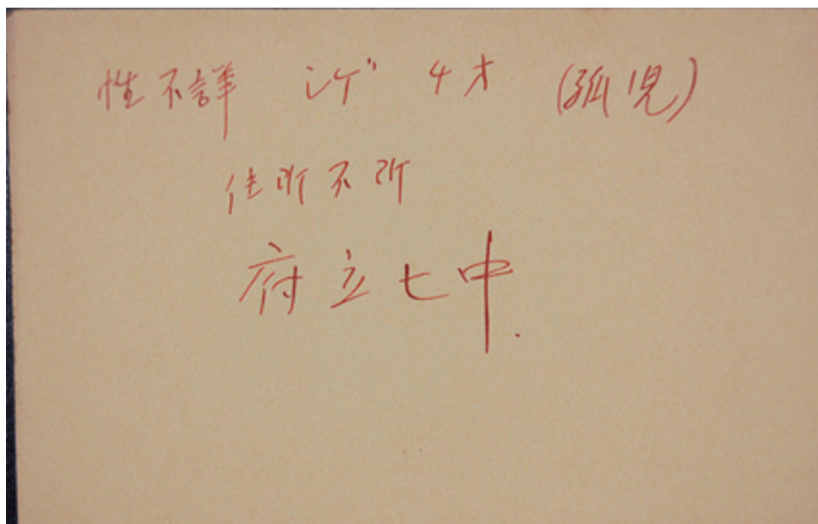 性不詳 シゲ 4才 (孤児)
住所不所
府立七中.